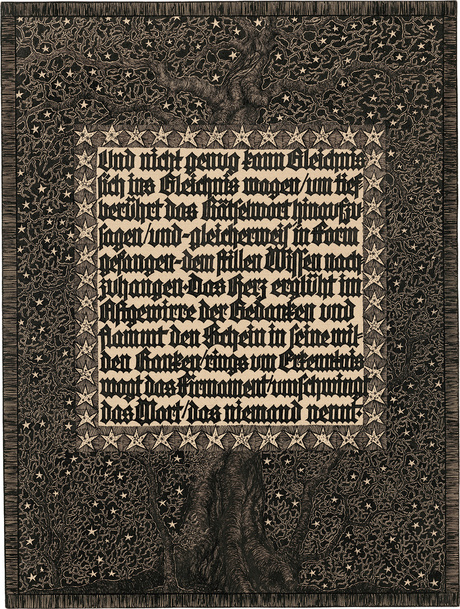 Und nicht genug kann Gleichnis
sich ins Gleichnis wagen/um tief
berührt das Rätselwort hinauszu
sagen/und-gleicherweis in Form
gefangen-dem stillen Wissen nach
zuhangen-Das Herz erglüht im
Astgewirre der Gedanken und
flammt den Schein in seine wil-
den Ranken/rings um Erkenntnis
wogt das Firmament/umschwingt
das Wort/das niemand nennt-